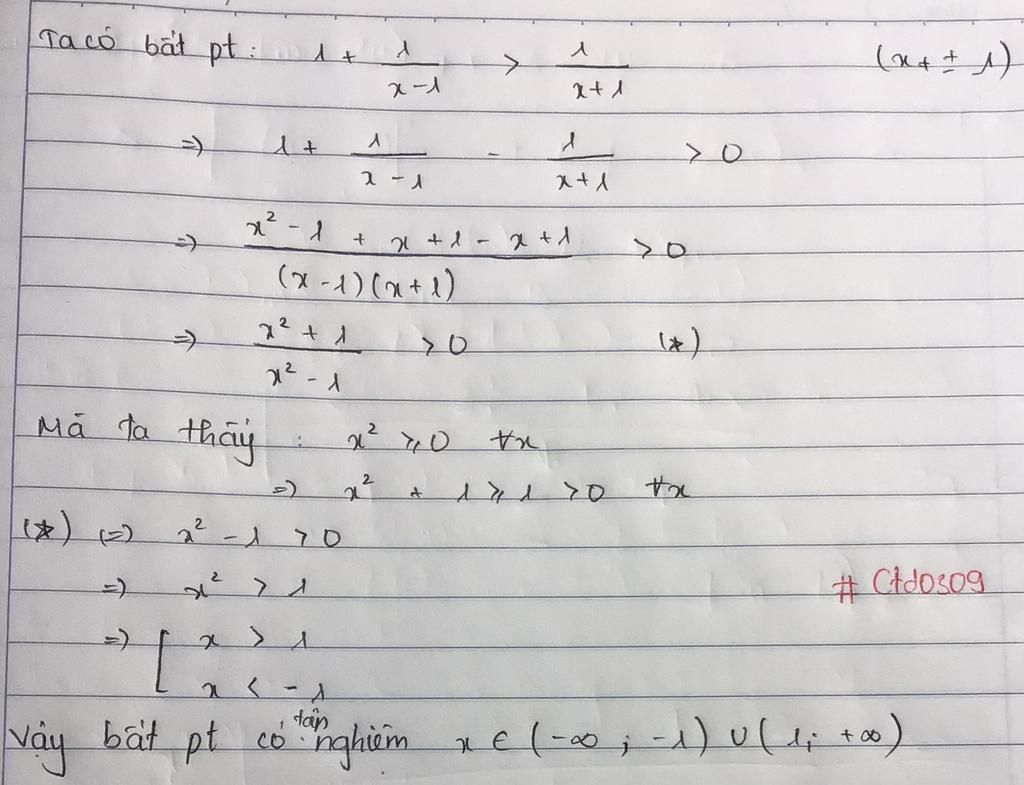 Ta có bất pt: 1 + \frac{1}{x-1} > \frac{1}{x+1} (x ≠ ± 1)
=> 1 + \frac{1}{x-1} - \frac{1}{x+1} > 0
=> \frac{x² - 1 + x + 1 - x + 1}{(x-1)(x+1)} > 0
=> \frac{x² + 1}{x² - 1} > 0 (*)
Mà ta thấy : x² ⩾ 0 ∀x
=> x² + 1 ⩾ 1 > 0 ∀x
(*) (=) x² - 1 > 0
=> x² > 1
# Ctd0309
=> [ x > 1
x < -1
Vậy bất pt có tập nghiệm x ∈ (-∞ ; -1) ∪ (1; +∞)